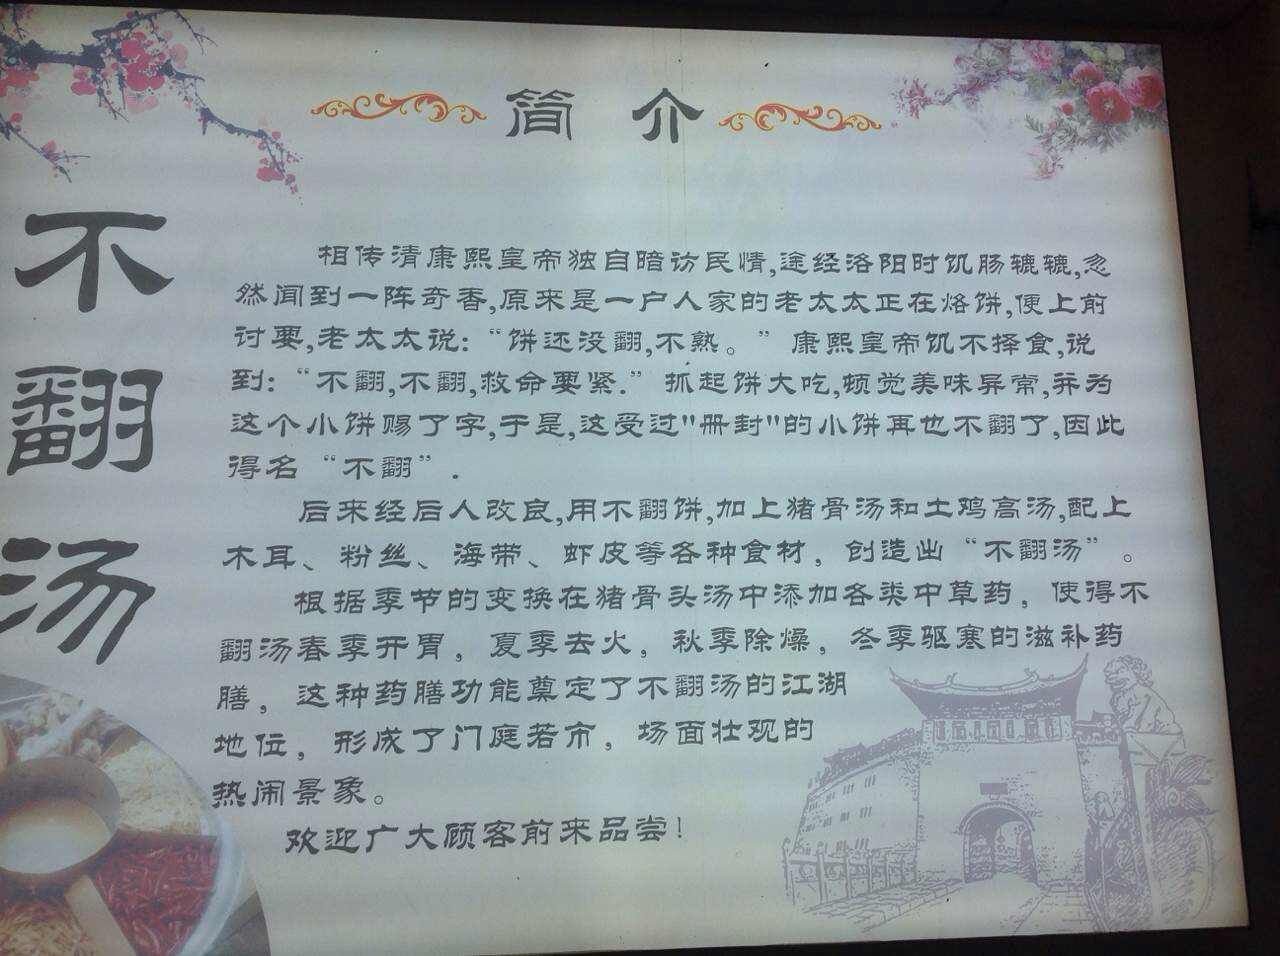 简 介
不翻汤
相传清康熙皇帝独自暗访民情,途经洛阳时饥肠辘辘,忽
然闻到一阵奇香,原来是一户人家的老太太正在烙饼,便上前
讨要,老太太说:“饼还没翻,不熟。”康熙皇帝饥不择食,说
到:“不翻,不翻,救命要紧.”抓起饼大吃,顿觉美味异常,并为
这个小饼赐了字,于是,这受过"册封"的小饼再也不翻了,因此
得名“不翻”.
后来经后人改良,用不翻饼,加上猪骨汤和土鸡高汤,配上
木耳、粉丝、海带、虾皮等各种食材，创造出“不翻汤”。
根据季节的变换在猪骨头汤中添加各类中草药，使得不
翻汤春季开胃，夏季去火，秋季除燥，冬季驱寒的滋补药
膳，这种药膳功能奠定了不翻汤的江湖
地位，形成了门庭若市，场面壮观的
热闹景象。
欢迎广大顾客前来品尝！